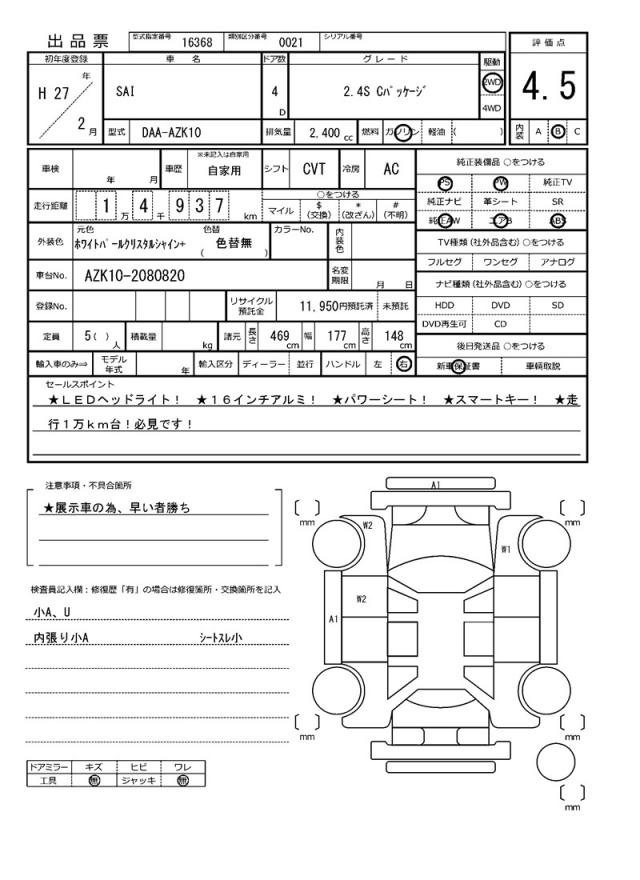 出品票 型式指定番号 16368 類別区分番号 0021 シリアル番号
評価点
初年度登録 車名 ドア数 グレード 駆動
H 27 年 2 月
SAI 4 D 2.4S Cパッケージ 2WD 4WD
4.5
型式 DAA-AZK10 排気量 2,400 cc 燃料 ガソリン 軽油 ( )
内装 A B C
車検 年 月 車歴 ※未記入は自家用 自家用 シフト CVT 冷房 AC
走行距離 1 万 4 千 9 3 7 km
○をつける
マイル $ (交換) * (改ざん) # (不明)
外装色 元色 ホワイトパールクリスタルシャイン+ 色替 ( 色替無 ) カラーNo. 内装色
車台No. AZK10-2080820 名変期限 月 日
登録No. リサイクル預託金 11,950円預託済 未預託
定員 5( ) 人 積載量 kg 諸元 長さ 469 cm 幅 177 cm 高さ 148 cm
輸入車のみ⇒ モデル年式 年 輸入区分 ディーラー 並行 ハンドル 左 右
純正装備品 ○をつける
PS PW 純正TV
純正ナビ 革シート SR
純正AW エアB ABS
TV種類(社外品含む)○をつける
フルセグ ワンセグ アナログ
ナビ種類(社外品含む)○をつける
HDD DVD SD
DVD再生可 CD
後日発送品 ○をつける
新車保証書 車輌取説
セールスポイント
★LEDヘッドライト! ★16インチアルミ! ★パワーシート! ★スマートキー! ★走
行1万km台!必見です!
注意事項・不具合箇所
★展示車の為、早い者勝ち
検査員記入欄:修復歴「有」の場合は修復箇所・交換箇所を記入
小A、U
内張り小A シートスレ小
ドアミラー キズ ヒビ ワレ
工具 無 ジャッキ 無
A1
[ ] mm [ ] mm
W2
W1
W2
A1
[ ] mm [ ] mm
[ ] mm